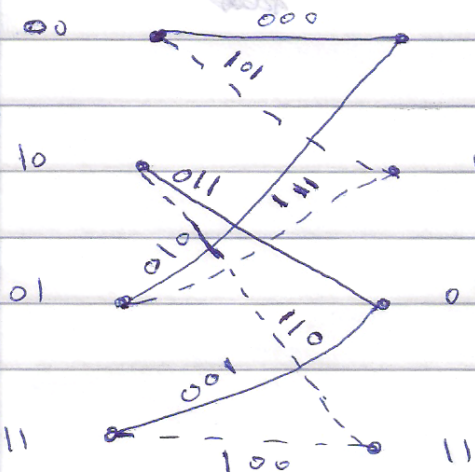 00 000
101
10 011 111
010
01 0
110
001
11 100 11